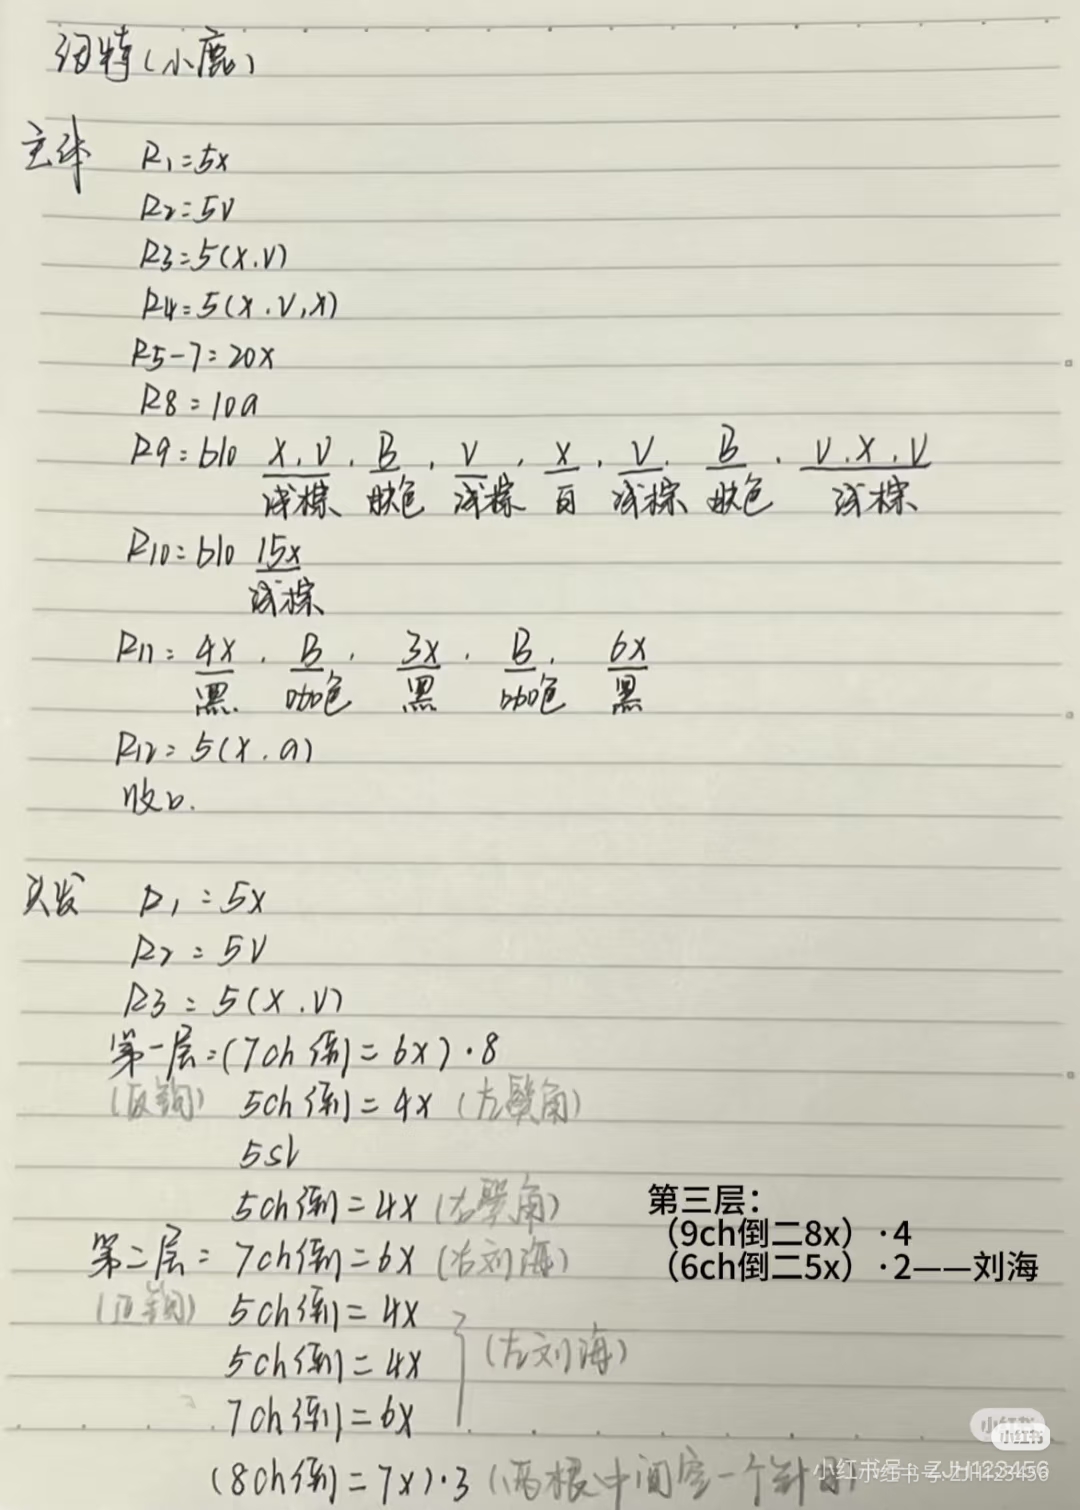 纽特(小鹿)
主体 R1=5x
R2=5V
R3=5(x.V)
R4=5(x.V,x)
R5-7=20x
R8=10A
R9=blo X.V. B. V. X. V. B. V.X.V
浅棕 肤色 浅棕 白 浅棕 肤色 浅棕
R10=blo 15x
浅棕
R11=4x. B. 3x. B. 6x
黑 咖色 黑 咖色 黑
R12=5(x.A)
收口.
头发 R1=5x
R2=5V
R3=5(x.V)
第一层=(7ch倒=6x)·8
(反钩) 5ch倒=4x (左鬓角)
5sl
5ch倒=4x (右鬓角)
第二层=7ch倒=6x (右刘海)
(正钩) 5ch倒=4x
5ch倒=4x (左刘海)
7ch倒=6x
(8ch倒=7x)·3 (两根中间空一个针目)
第三层：
（9ch倒二8x）·4
（6ch倒二5x）·2——刘海
小红书
小红书
小红书号:ZJH123456
小红书号:ZJH123456